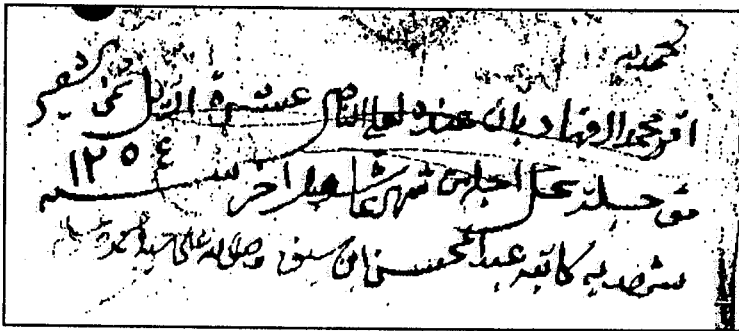 الحمد لله
اقر محمد الفهاد بان عنده لعلي الناصر عشرة اريل ثمن الشعير
مؤجلة يحل اجلهن شهر عاشور اخر سنة ١٢٥٤
شهد به كاتبه عبد المحسن ابن سيف وصلى الله على سيدنا محمد